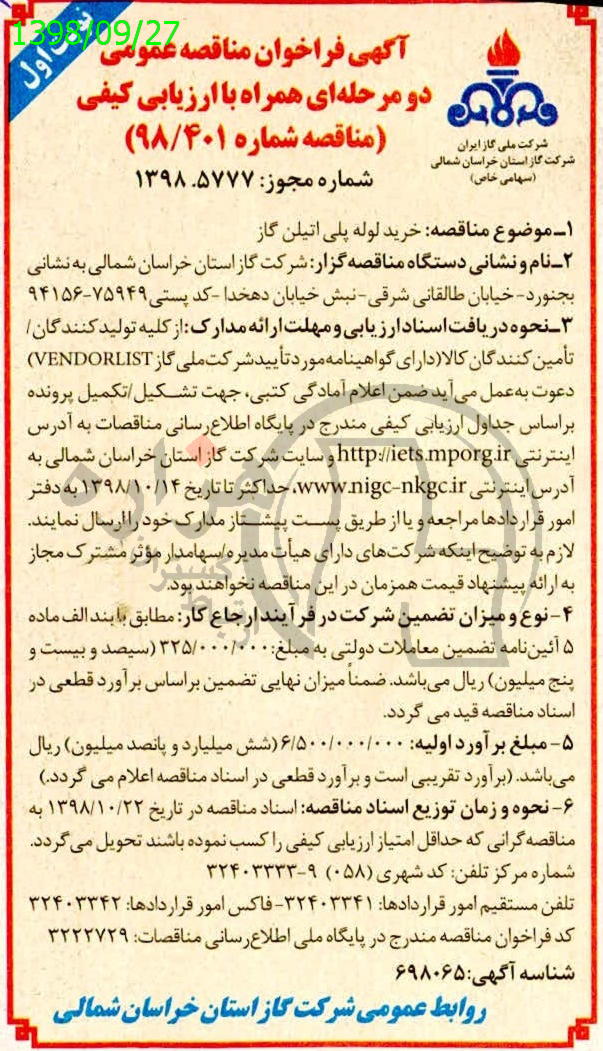 1398/09/27
نوبت اول
آگهی فراخوان مناقصه عمومی
دو مرحله‌ای همراه با ارزیابی کیفی
(مناقصه شماره ۹۸/۴۰۱)
شماره مجوز: ۱۳۹۸.۵۷۷۷
شرکت ملی گاز ایران
شرکت گاز استان خراسان شمالی
(سهامی خاص)
۱ـ موضوع مناقصه: خرید لوله پلی اتیلن گاز
۲ـ نام و نشانی دستگاه مناقصه‌گزار: شرکت گاز استان خراسان شمالی به نشانی
بجنورد- خیابان طالقانی شرقی- نبش خیابان دهخدا - کد پستی ۷۵۹۴۹-۹۴۱۵۶
۳ـ نحوه دریافت اسناد ارزیابی و مهلت ارائه مدارک: از کلیه تولیدکنندگان/
تأمین‌کنندگان کالا(دارای گواهینامه مورد تأیید شرکت ملی گاز VENDORLIST)
دعوت به‌عمل می‌آید ضمن اعلام آمادگی کتبی، جهت تشکیل/تکمیل پرونده
براساس جداول ارزیابی کیفی مندرج در پایگاه اطلاع‌رسانی مناقصات به آدرس
اینترنتی http://iets.mporg.ir و سایت شرکت گاز استان خراسان شمالی به
آدرس اینترنتی www.nigc-nkgc.ir، حداکثر تا تاریخ ۱۳۹۸/۱۰/۱۴ به دفتر
امور قراردادها مراجعه و یا از طریق پست پیشتاز مدارک خود را ارسال نمایند.
لازم به توضیح اینکه شرکت‌های دارای هیأت مدیره/سهامدار مؤثر مشترک مجاز
به ارائه پیشنهاد قیمت همزمان در این مناقصه نخواهند بود.
۴- نوع و میزان تضمین شرکت در فرآیند ارجاع کار: مطابق با بند الف ماده
۵ آئین‌نامه تضمین معاملات دولتی به مبلغ: ۳۲۵/۰۰۰/۰۰۰ (سیصد و بیست و
پنج میلیون) ریال می‌باشد. ضمناً میزان نهایی تضمین براساس برآورد قطعی در
اسناد مناقصه قید می گردد.
۵- مبلغ برآورد اولیه: ۶/۵۰۰/۰۰۰/۰۰۰ (شش میلیارد و پانصد میلیون) ریال
می‌باشد. (برآورد تقریبی است و برآورد قطعی در اسناد مناقصه اعلام می گردد.)
۶- نحوه و زمان توزیع اسناد مناقصه: اسناد مناقصه در تاریخ ۱۳۹۸/۱۰/۲۲ به
مناقصه‌گرانی که حداقل امتیاز ارزیابی کیفی را کسب نموده باشند تحویل می‌گردد.
شماره مرکز تلفن: کد شهری (۰۵۸) ۹-۳۲۴۰۳۳۳۳
تلفن مستقیم امور قراردادها: ۳۲۴۰۳۳۴۱- فاکس امور قراردادها: ۳۲۴۰۳۳۴۲
کد فراخوان مناقصه مندرج در پایگاه ملی اطلاع‌رسانی مناقصات: ۳۲۲۲۷۲۹
شناسه آگهی: ۶۹۸۰۶۵
روابط عمومی شرکت گاز استان خراسان شمالی